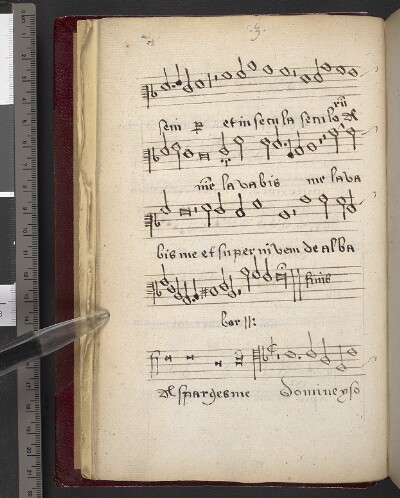 .3.
semper et in secula seculorū Al
me lavabis me lava
bis me et super nivem de alba
finis
bor ||:
Aspargesme Domine yso